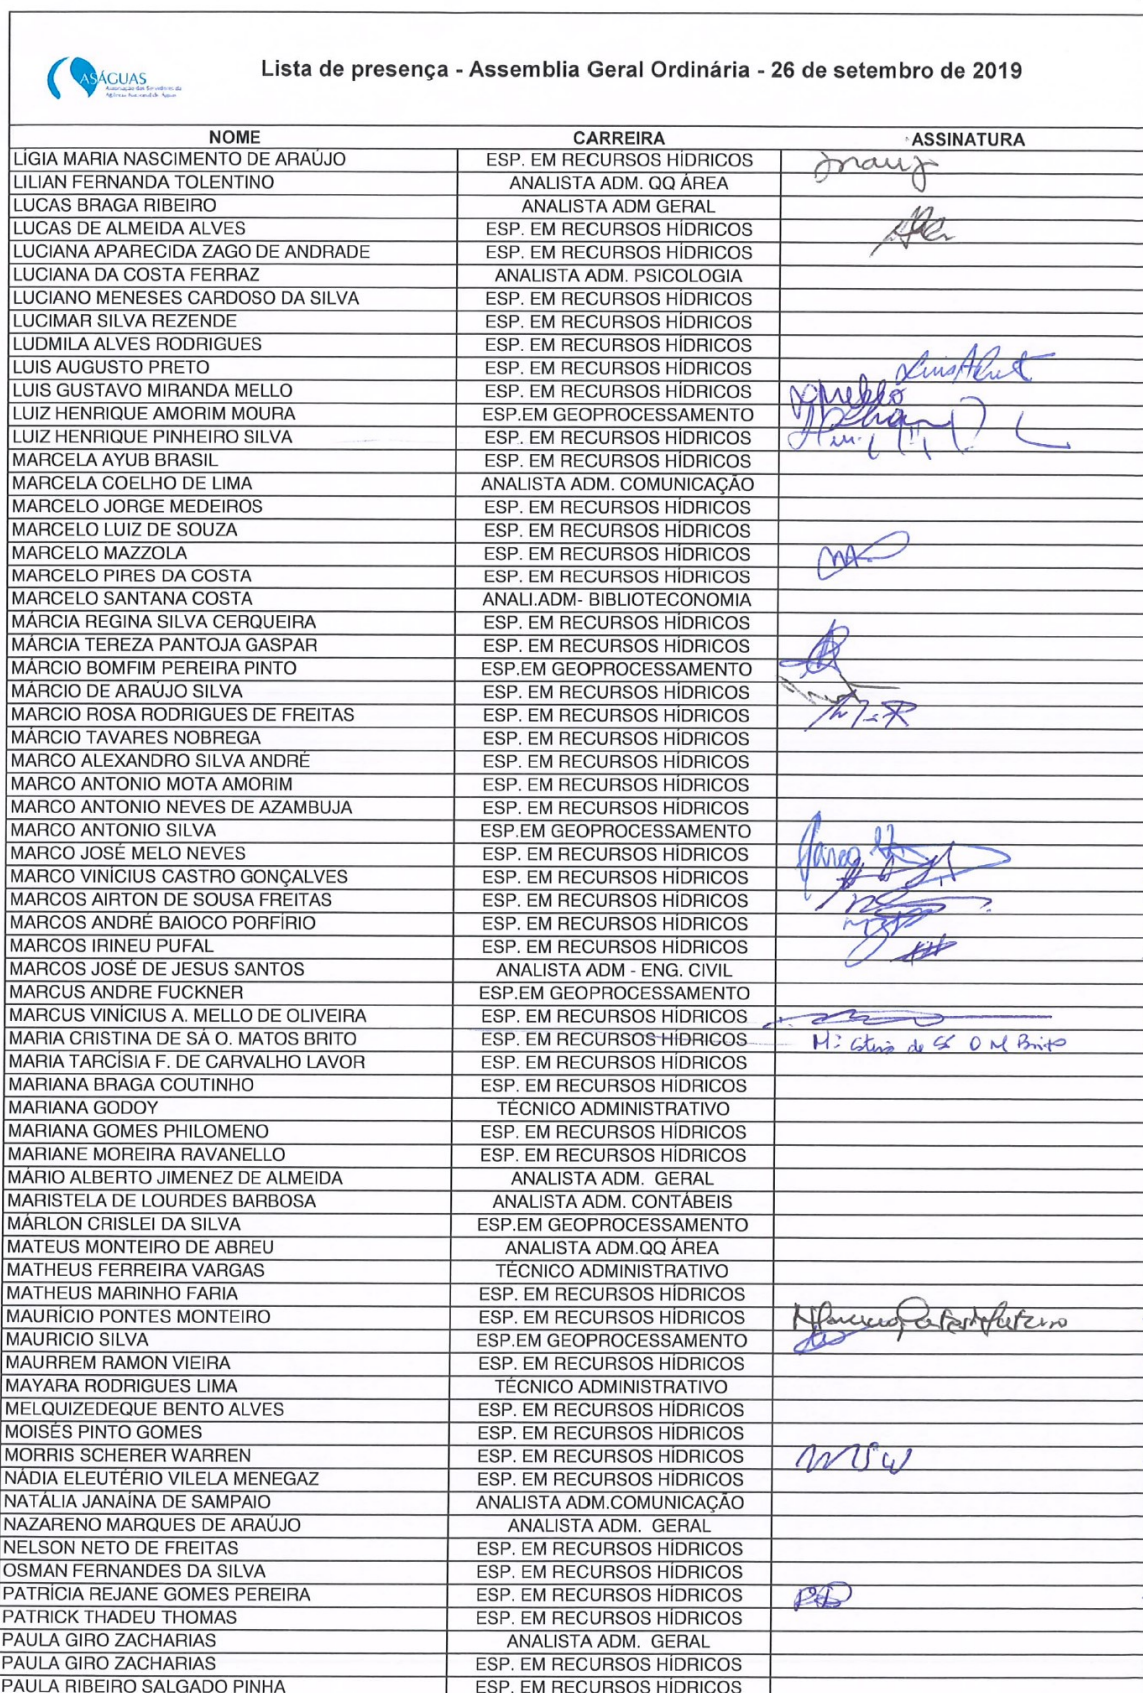 ASÁGUAS
Associação dos Servidores da
Agência Nacional de Águas
Lista de presença - Assemblia Geral Ordinária - 26 de setembro de 2019
NOME CARREIRA ASSINATURA
LÍGIA MARIA NASCIMENTO DE ARAÚJO ESP. EM RECURSOS HÍDRICOS Araujo
LILIAN FERNANDA TOLENTINO ANALISTA ADM. QQ ÁREA
LUCAS BRAGA RIBEIRO ANALISTA ADM GERAL
LUCAS DE ALMEIDA ALVES ESP. EM RECURSOS HÍDRICOS
LUCIANA APARECIDA ZAGO DE ANDRADE ESP. EM RECURSOS HÍDRICOS
LUCIANA DA COSTA FERRAZ ANALISTA ADM. PSICOLOGIA
LUCIANO MENESES CARDOSO DA SILVA ESP. EM RECURSOS HÍDRICOS
LUCIMAR SILVA REZENDE ESP. EM RECURSOS HÍDRICOS
LUDMILA ALVES RODRIGUES ESP. EM RECURSOS HÍDRICOS
LUIS AUGUSTO PRETO ESP. EM RECURSOS HÍDRICOS
LUIS GUSTAVO MIRANDA MELLO ESP. EM RECURSOS HÍDRICOS
LUIZ HENRIQUE AMORIM MOURA ESP.EM GEOPROCESSAMENTO
LUIZ HENRIQUE PINHEIRO SILVA ESP. EM RECURSOS HÍDRICOS
MARCELA AYUB BRASIL ESP. EM RECURSOS HÍDRICOS
MARCELA COELHO DE LIMA ANALISTA ADM. COMUNICAÇÃO
MARCELO JORGE MEDEIROS ESP. EM RECURSOS HÍDRICOS
MARCELO LUIZ DE SOUZA ESP. EM RECURSOS HÍDRICOS
MARCELO MAZZOLA ESP. EM RECURSOS HÍDRICOS
MARCELO PIRES DA COSTA ESP. EM RECURSOS HÍDRICOS
MARCELO SANTANA COSTA ANALI.ADM- BIBLIOTECONOMIA
MÁRCIA REGINA SILVA CERQUEIRA ESP. EM RECURSOS HÍDRICOS
MÁRCIA TEREZA PANTOJA GASPAR ESP. EM RECURSOS HÍDRICOS
MÁRCIO BOMFIM PEREIRA PINTO ESP.EM GEOPROCESSAMENTO
MÁRCIO DE ARAÚJO SILVA ESP. EM RECURSOS HÍDRICOS
MARCIO ROSA RODRIGUES DE FREITAS ESP. EM RECURSOS HÍDRICOS
MÁRCIO TAVARES NOBREGA ESP. EM RECURSOS HÍDRICOS
MARCO ALEXANDRO SILVA ANDRÉ ESP. EM RECURSOS HÍDRICOS
MARCO ANTONIO MOTA AMORIM ESP. EM RECURSOS HÍDRICOS
MARCO ANTONIO NEVES DE AZAMBUJA ESP. EM RECURSOS HÍDRICOS
MARCO ANTONIO SILVA ESP.EM GEOPROCESSAMENTO
MARCO JOSÉ MELO NEVES ESP. EM RECURSOS HÍDRICOS
MARCO VINÍCIUS CASTRO GONÇALVES ESP. EM RECURSOS HÍDRICOS
MARCOS AIRTON DE SOUSA FREITAS ESP. EM RECURSOS HÍDRICOS
MARCOS ANDRÉ BAIOCO PORFÍRIO ESP. EM RECURSOS HÍDRICOS
MARCOS IRINEU PUFAL ESP. EM RECURSOS HÍDRICOS
MARCOS JOSÉ DE JESUS SANTOS ANALISTA ADM - ENG. CIVIL
MARCUS ANDRE FUCKNER ESP.EM GEOPROCESSAMENTO
MARCUS VINÍCIUS A. MELLO DE OLIVEIRA ESP. EM RECURSOS HÍDRICOS
MARIA CRISTINA DE SÁ O. MATOS BRITO ESP. EM RECURSOS HÍDRICOS de Sá O M Brito
MARIA TARCÍSIA F. DE CARVALHO LAVOR ESP. EM RECURSOS HÍDRICOS
MARIANA BRAGA COUTINHO ESP. EM RECURSOS HÍDRICOS
MARIANA GODOY TÉCNICO ADMINISTRATIVO
MARIANA GOMES PHILOMENO ESP. EM RECURSOS HÍDRICOS
MARIANE MOREIRA RAVANELLO ESP. EM RECURSOS HÍDRICOS
MÁRIO ALBERTO JIMENEZ DE ALMEIDA ANALISTA ADM. GERAL
MARISTELA DE LOURDES BARBOSA ANALISTA ADM. CONTÁBEIS
MÁRLON CRISLEI DA SILVA ESP.EM GEOPROCESSAMENTO
MATEUS MONTEIRO DE ABREU ANALISTA ADM.QQ ÁREA
MATHEUS FERREIRA VARGAS TÉCNICO ADMINISTRATIVO
MATHEUS MARINHO FARIA ESP. EM RECURSOS HÍDRICOS
MAURÍCIO PONTES MONTEIRO ESP. EM RECURSOS HÍDRICOS
MAURICIO SILVA ESP.EM GEOPROCESSAMENTO
MAURREM RAMON VIEIRA ESP. EM RECURSOS HÍDRICOS
MAYARA RODRIGUES LIMA TÉCNICO ADMINISTRATIVO
MELQUIZEDEQUE BENTO ALVES ESP. EM RECURSOS HÍDRICOS
MOISÉS PINTO GOMES ESP. EM RECURSOS HÍDRICOS
MORRIS SCHERER WARREN ESP. EM RECURSOS HÍDRICOS MSW
NÁDIA ELEUTÉRIO VILELA MENEGAZ ESP. EM RECURSOS HÍDRICOS
NATÁLIA JANAÍNA DE SAMPAIO ANALISTA ADM.COMUNICAÇÃO
NAZARENO MARQUES DE ARAÚJO ANALISTA ADM. GERAL
NELSON NETO DE FREITAS ESP. EM RECURSOS HÍDRICOS
OSMAN FERNANDES DA SILVA ESP. EM RECURSOS HÍDRICOS
PATRÍCIA REJANE GOMES PEREIRA ESP. EM RECURSOS HÍDRICOS
PATRICK THADEU THOMAS ESP. EM RECURSOS HÍDRICOS
PAULA GIRO ZACHARIAS ANALISTA ADM. GERAL
PAULA GIRO ZACHARIAS ESP. EM RECURSOS HÍDRICOS
PAULA RIBEIRO SALGADO PINHA ESP. EM RECURSOS HÍDRICOS